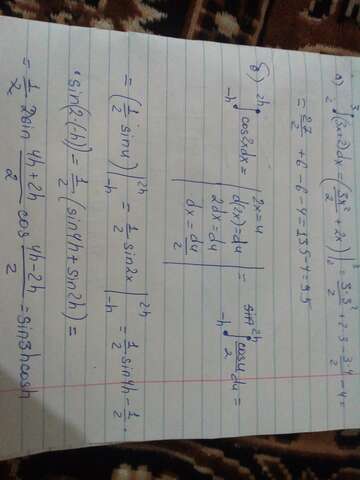 а) ∫₂³ (3x+2)dx = (3x²/2 + 2x)|₂³ = 3·3²/2 + 2·3 - 3·4/2 - 4 =
= 27/2 + 6 - 6 - 4 = 13,5 - 4 = 9,5
б) ∫₋ₕ²ʰ cos2xdx = | 2x = u
d(2x) = du
2dx = du
dx = du/2 | = ∫₋ₕ²ʰ cosu/2 du =
= (1/2 sinu)|₋ₕ²ʰ = 1/2 sin2x|₋ₕ²ʰ = 1/2 sin4h - 1/2 ·
· sin(2·(-h)) = 1/2 (sin4h + sin2h) =
= 1/2 · 2sin (4h+2h)/2 cos (4h-2h)/2 = sin3h cosh